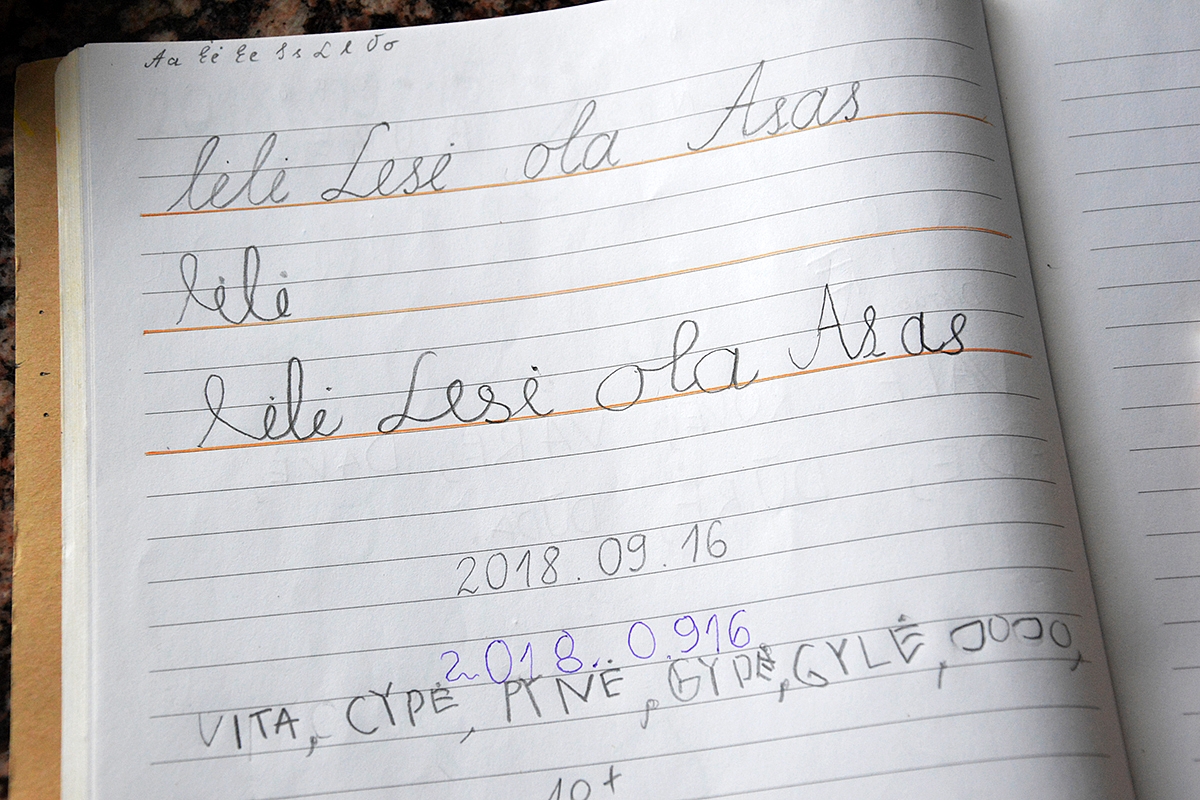 Aa Ėė Ee Ss Ll Oo
lėlė Lesė ola Asas
lėlė
lėlė Lesė ola Asas
2018.09.16
2018..0.916
VITA, CYPĖ, PYNĖ, GYPĖ, GYLĖ, JOJO,
10+